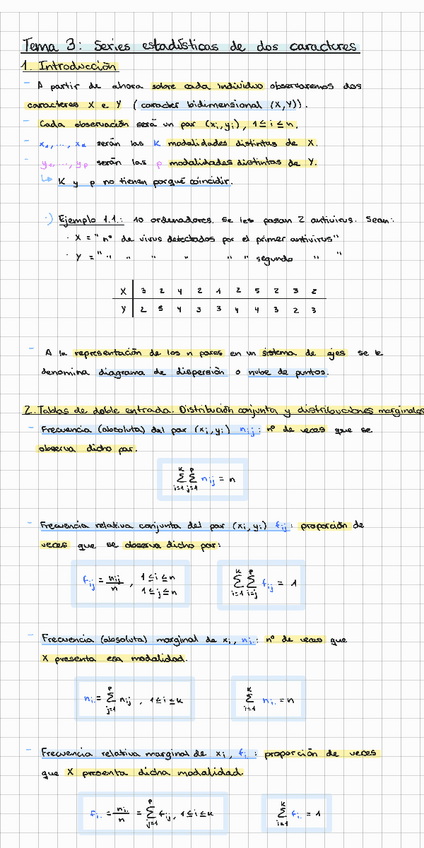 Tema 3: Series estadísticas de dos caracteres
1. Introducción
- A partir de ahora sobre cada individuo observaremos dos
caracteres X e Y (caracter bidimensional (X,Y)).
- Cada observación será un par (xᵢ, yᵢ), 1 ≤ i ≤ n.
- x₁, ..., xₖ serán las K modalidades distintas de X.
- y₁, ..., yₚ serán las p modalidades distintas de Y.
↳ K y p no tienen porqué coincidir.
·) Ejemplo 1.1.: 10 ordenadores. Se les pasan 2 antivirus. Sean:
· X = "nº de virus detectados por el primer antivirus"
· Y = " " " " " " segundo " "
X | 3 2 4 2 1 2 5 2 3 2
Y | 2 5 4 3 3 4 4 3 2 3
- A la representación de los n pares en un sistema de ejes se le
denomina diagrama de dispersión o nube de puntos.
2. Tablas de doble entrada. Distribución conjunta y distribuciones marginales
- Frecuencia (absoluta) del par (xᵢ, yⱼ) nᵢⱼ: nº de veces que se
observa dicho par.
∑ᵢ₌₁ᴷ ∑ⱼ₌₁ᵖ nᵢⱼ = n
- Frecuencia relativa conjunta del par (xᵢ, yᵢ) fᵢⱼ: proporción de
veces que se observa dicho par:
fᵢⱼ = nᵢⱼ/n , 1 ≤ i ≤ n
1 ≤ j ≤ n
∑ᵢ₌₁ᴷ ∑ᵢ₌ⱼᵖ fᵢⱼ = 1
- Frecuencia (absoluta) marginal de xᵢ, nᵢ.: nº de veces que
X presenta esa modalidad.
nᵢ. = ∑ⱼ₌₁ᵖ nᵢⱼ , 1 ≤ i ≤ K
∑ᵢ₌₁ᴷ nᵢ. = n
- Frecuencia relativa marginal de xᵢ, fᵢ.: proporción de veces
que X presenta dicha modalidad
fᵢ. = nᵢ./n = ∑ⱼ₌₁ᵖ fᵢⱼ, 1 ≤ i ≤ K
∑ᵢ₌₁ᴷ fᵢ. = 1